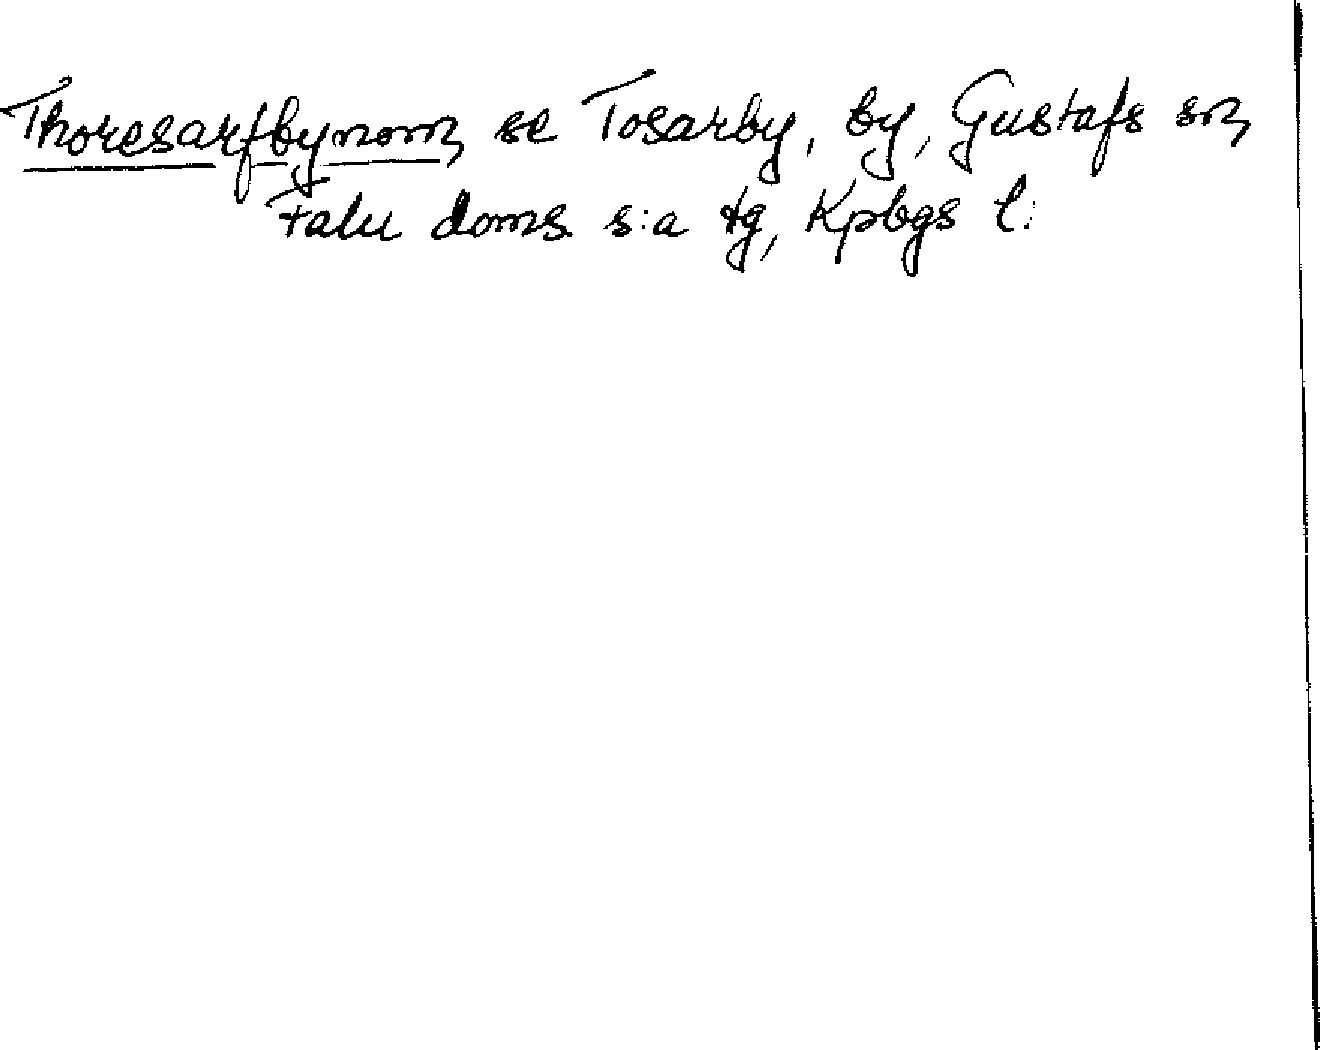 Thoresarfbynom, se Tosarby, by, Gustafs sn,
Falu doms. s:a tg, Kpbgs l: